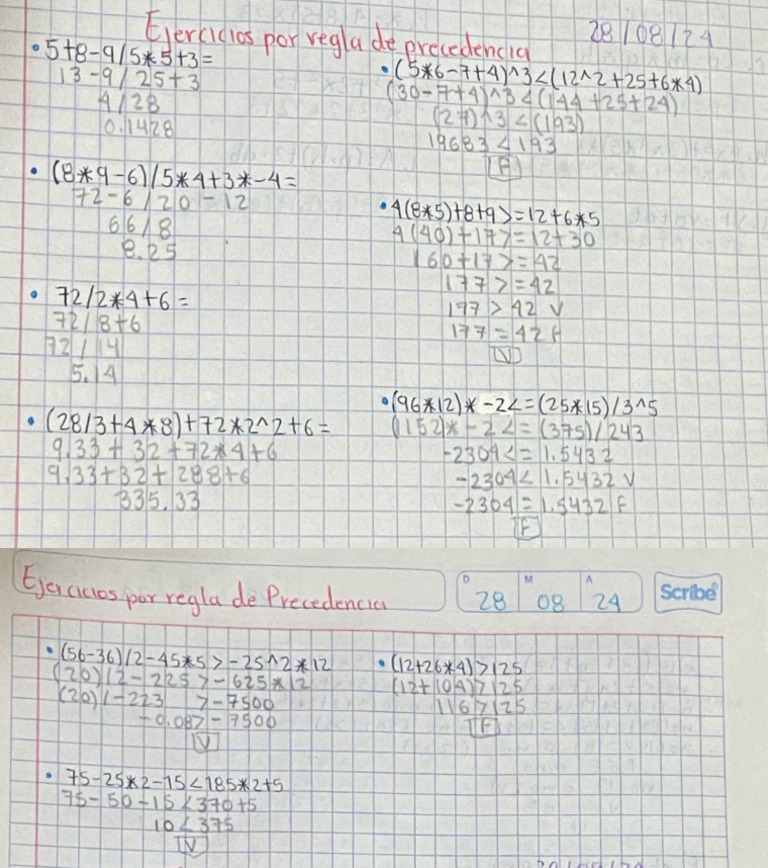 Ejercicios por regla de precedencia
28/08/24
• 5+8-9/5*5+3=
13-9/25+3
4/28
0.1428
• (8*9-6)/5*4+3*-4=
72-6/20-12
66/8
8.25
• 72/2*4+6=
72/8+6
72/14
5.14
• (28/3+4*8)+72*2^2+6=
9.33+32+72*4+6
9.33+32+288+6
335.33
• (5*6-7+4)^3<(12^2+25+6*4)
(30-7+4)^3<(144+25+24)
(27)^3<(193)
19683<193
F
• 4(8*5)+8+9>=12+6*5
4(40)+17>=12+30
160+17>=42
177>=42
177>42 V
177=42 F
V
• (96*12)*-2<=(25*15)/3^5
(1152)*-2<=(375)/243
-2304<=1.5432
-2304<1.5432 V
-2304=1.5432 F
F
Ejercicios por regla de Precedencia
D M A
28 08 24
Scribe
• (56-36)/2-45*5>-25^2*12
(20)/2-225>-625*12
(20)/-223 >-7500
-0.08>-7500
V
• 75-25*2-15<185*2+5
75-50-15<370+5
10<375
V
• (12+26*4)>125
(12+104)>125
116>125
F